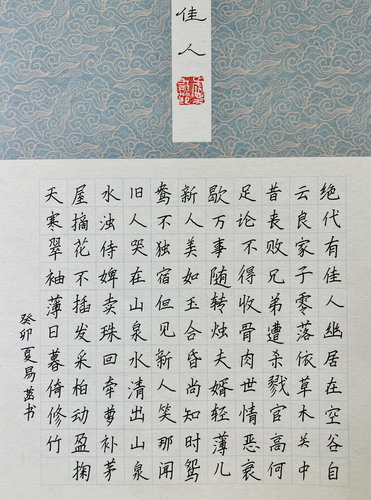 佳人
绝代有佳人幽居在空谷自
云良家子零落依草木关中
昔丧败兄弟遭杀戮官高何
足论不得收骨肉世情恶衰
歇万事随转烛夫婿轻薄儿
新人美如玉合昏尚知时鸳
鸯不独宿但见新人笑那闻
旧人哭在山泉水清出山泉
水浊侍婢卖珠回牵萝补茅
屋摘花不插发采柏动盈掬
天寒翠袖薄日暮倚修竹
癸卯夏易书